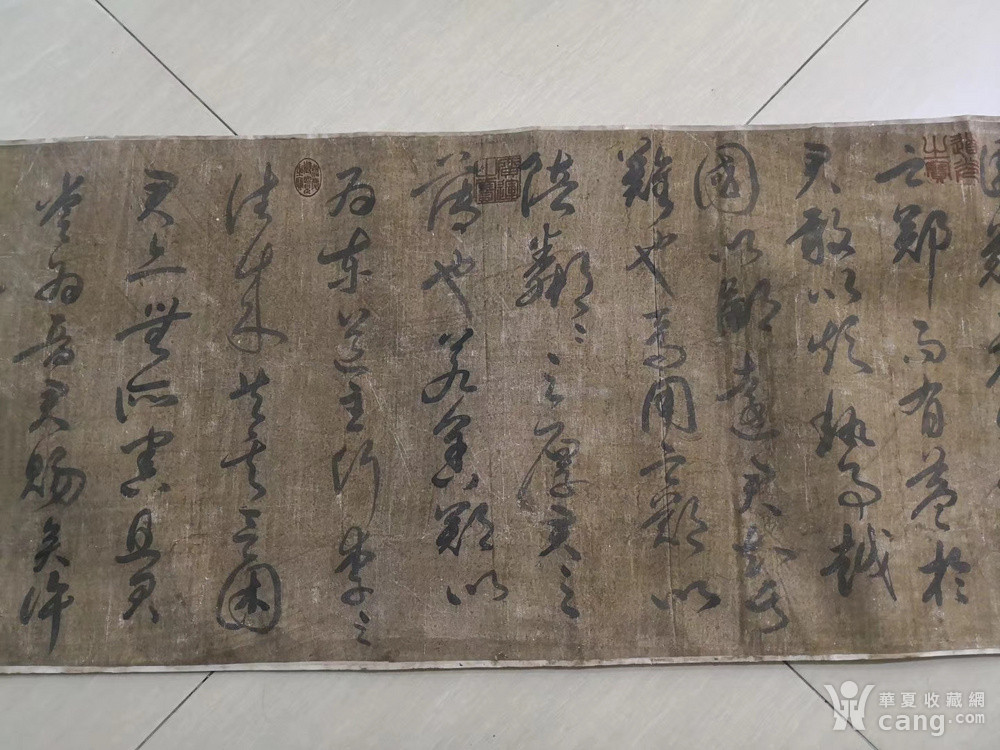 亡鄭而有益於
君敢以煩執事越
國以鄙遠君知其
難也焉用亡鄭以
陪鄰〻之厚君之
薄也若舍鄭以
為東道主行李之
往來共其乏困
君亦無所害且君
嘗為晉君賜矣許
華夏收藏網
cang.com